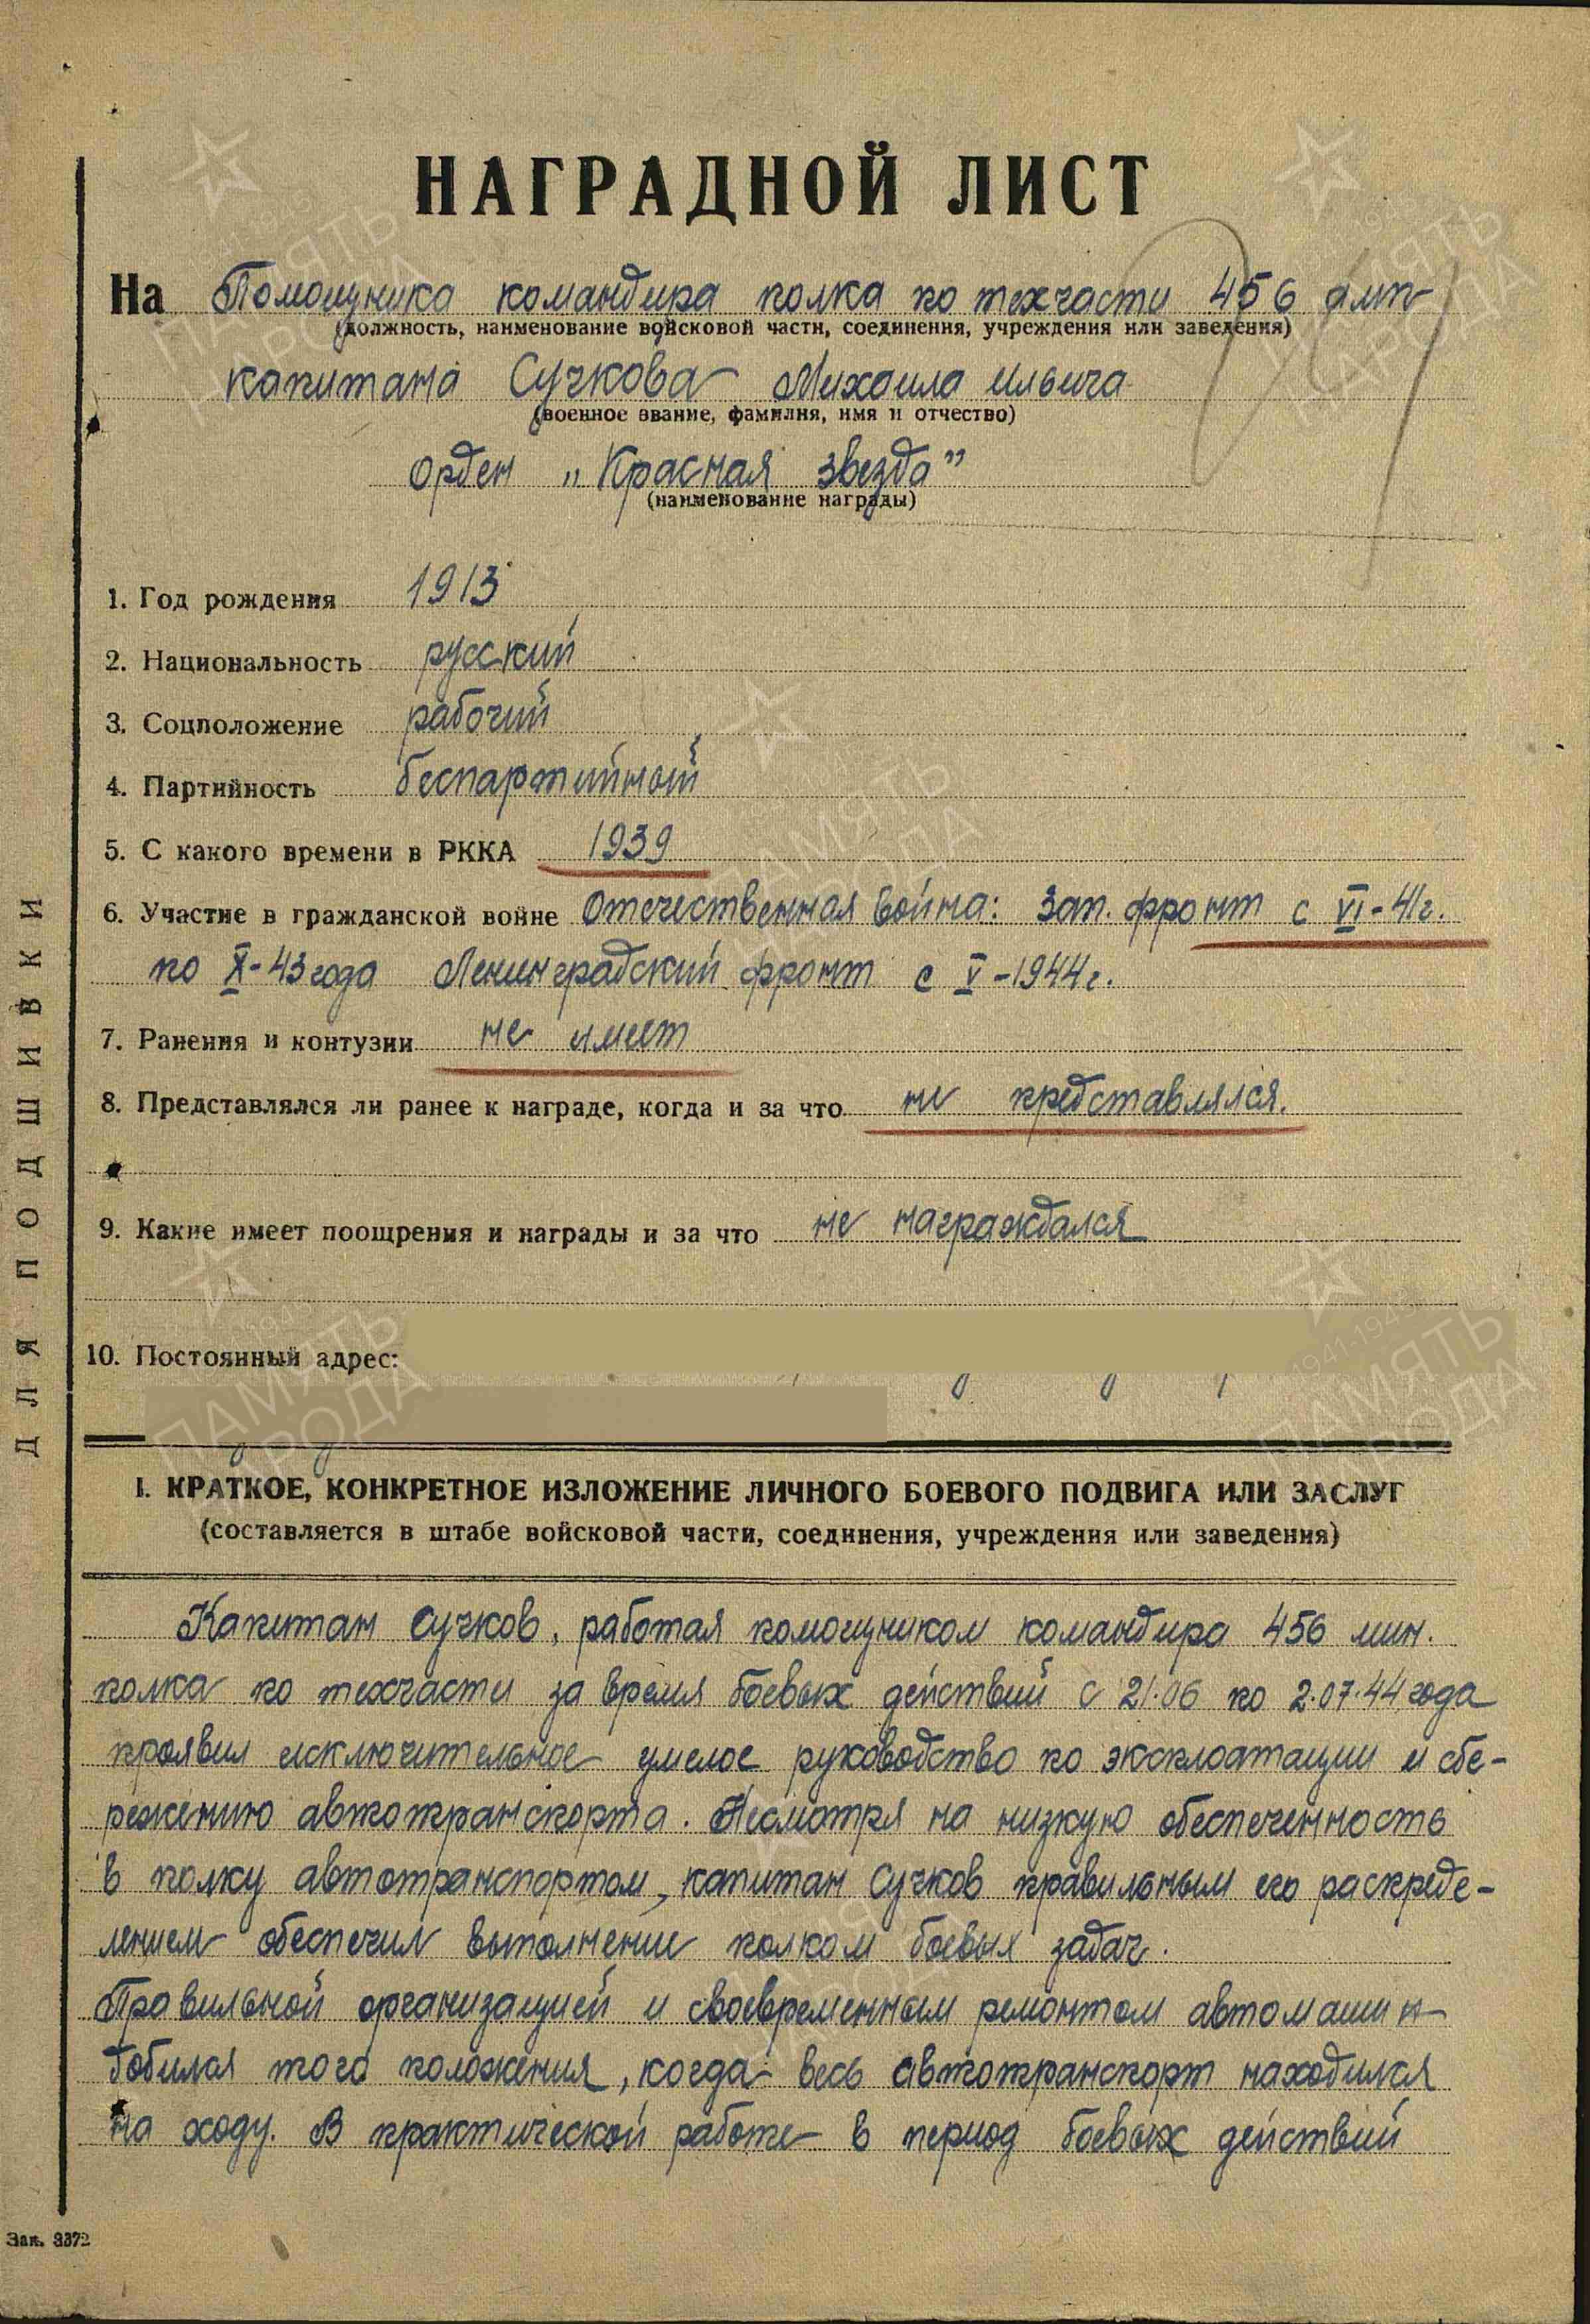 НАГРАДНОЙ ЛИСТ
На Помощника командира полка по техчасти 456 амп
(должность, наименование войсковой части, соединения, учреждения или заведения)
капитана Сучкова Михаила Ильича
(военное звание, фамилия, имя и отчество)
орден „Красная звезда"
(наименование награды)
1. Год рождения 1913
2. Национальность русский
3. Соцположение рабочий
4. Партийность беспартийный
5. С какого времени в РККА 1939
6. Участие в гражданской войне Отечественная война: Зап. фронт с VI-41г.
по X-43 года Ленинградский фронт с V-1944г.
7. Ранения и контузии не имеет
8. Представлялся ли ранее к награде, когда и за что не представлялся.
9. Какие имеет поощрения и награды и за что не награждался
10. Постоянный адрес:
I. КРАТКОЕ, КОНКРЕТНОЕ ИЗЛОЖЕНИЕ ЛИЧНОГО БОЕВОГО ПОДВИГА ИЛИ ЗАСЛУГ
(составляется в штабе войсковой части, соединения, учреждения или заведения)
Капитан Сучков, работая помощником командира 456 мин.
полка по техчасти за время боевых действий с 21.06 по 2.07.44 года
проявил исключительное умелое руководство по эксплоатации и сбе-
режению автотранспорта. Несмотря на низкую обеспеченность
в полку автотранспортом, капитан Сучков правильным его распреде-
лением обеспечил выполнение полком боевых задач.
Правильной организацией и своевременным ремонтом автомашин
добился того положения, когда весь автотранспорт находился
на ходу. В практической работе в период боевых действий
ДЛЯ ПОДШИВКИ
Зак. 3372
ПАМЯТЬ НАРОДА
1941-1945